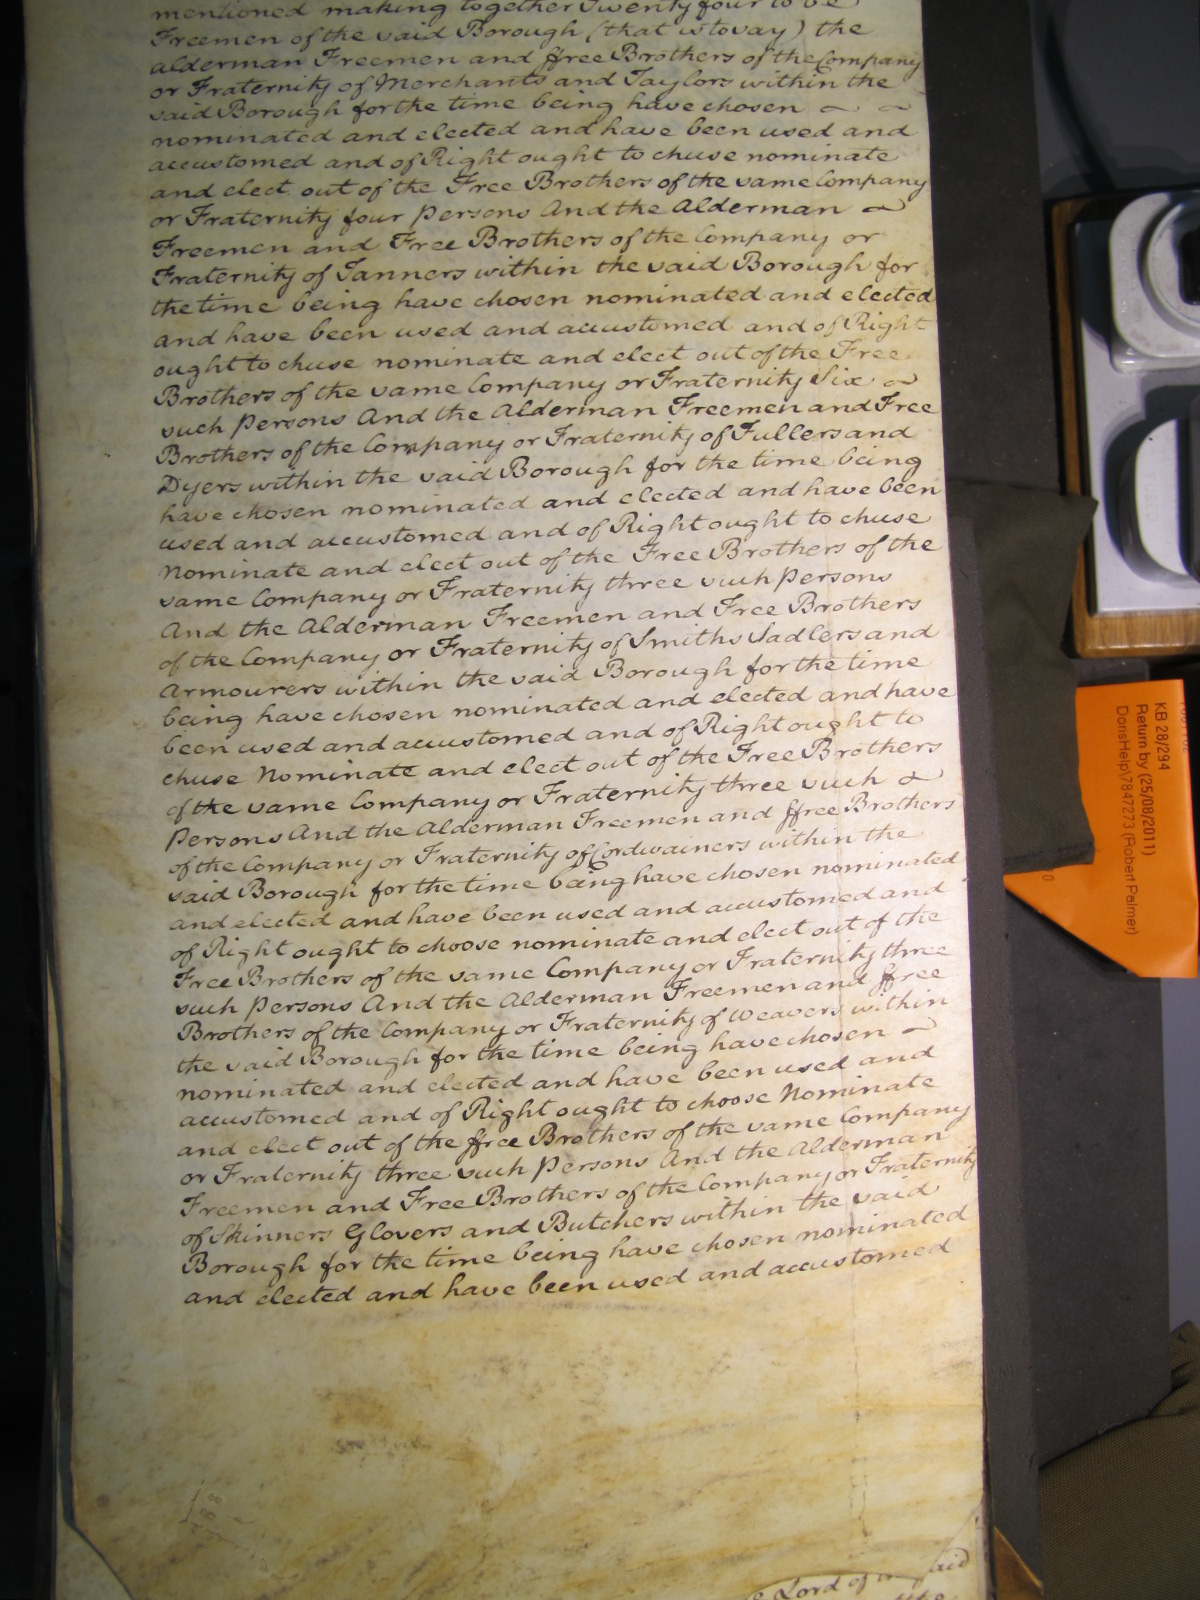 mentioned making together Twenty four to be
Freemen of the said Borough (that is to say) the
Alderman Freemen and ffree Brothers of the Company
or Fraternity of Merchants and Taylors within the
said Borough for the time being have chosen
nominated and elected and have been used and
accustomed and of Right ought to chuse nominate
and elect out of the Free Brothers of the same Company
or Fraternity four Persons And the Alderman
Freemen and Free Brothers of the Company or
Fraternity of Tanners within the said Borough for
the time being have chosen nominated and elected
and have been used and accustomed and of Right
ought to chuse nominate and elect out of the Free
Brothers of the same Company or Fraternity Six
such Persons And the Alderman Freemen and Free
Brothers of the Company or Fraternity of Fullers and
Dyers within the said Borough for the time being
have chosen nominated and elected and have been
used and accustomed and of Right ought to chuse
Nominate and elect out of the Free Brothers of the
same Company or Fraternity three such Persons
And the Alderman Freemen and Free Brothers
of the Company or Fraternity of Smiths Sadlers and
Armourers within the said Borough for the time
being have chosen nominated and elected and have
been used and accustomed and of Right ought to
chuse Nominate and elect out of the Free Brothers
of the same Company or Fraternity three such
Persons And the Alderman Freemen and ffree Brothers
of the Company or Fraternity of Cordwainers within the
said Borough for the time being have chosen nominated
and elected and have been used and accustomed and
of Right ought to choose nominate and elect out of the
Free Brothers of the same Company or Fraternity three
such Persons And the Alderman Freemen and ffree
Brothers of the Company or Fraternity of Weavers within
the said Borough for the time being have chosen
nominated and elected and have been used and
accustomed and of Right ought to choose Nominate
and elect out of the ffree Brothers of the same Company
or Fraternity three such Persons And the Alderman
Freemen and Free Brothers of the Company or Fraternity
of Skinners Glovers and Butchers within the said
Borough for the time being have chosen nominated
and elected and have been used and accustomed
Lord of
KB 28/294
Return by (25/08/2011)
DorisHelp\7847273 (Robert Palmer)